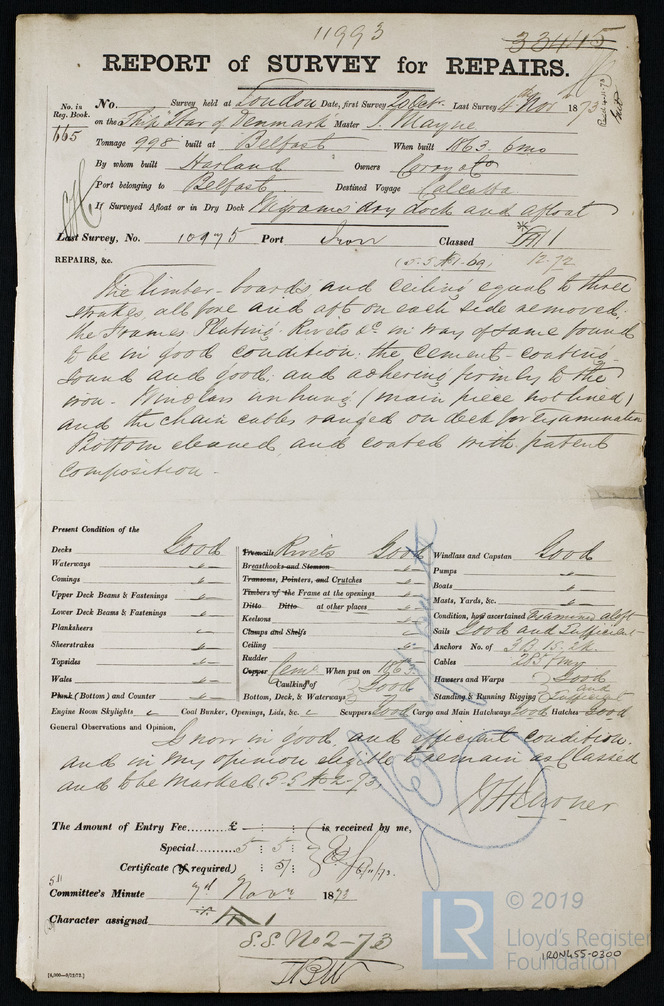 11993
33445
REPORT of SURVEY for REPAIRS.
No. in Reg. Book.
665
No. Survey held at London Date, first Survey 20 Oct. Last Survey 4th Nov 1873
on the Ship "Star of Denmark" Master J. Mayne
Tonnage 998 built at Belfast When built 1863. 6mo
By whom built Harland Owners Corry & Co
Port belonging to Belfast Destined Voyage Calcutta
If Surveyed Afloat or in Dry Dock Ingrams dry dock and afloat
Last Survey, No. 10975 Port Iron Classed A1
(S.S. No 1-69) 12.72
REPAIRS, &c.
The limber-boards and ceiling equal to three
strakes all fore and aft on each side removed;
the Frames Plating Rivets &c. in way of same found
to be in good condition; the cement-coating
sound and good; and adhering firmly to the
iron. Windlass unhung (main piece not lined)
and the chain cables ranged on deck for Examination
Bottom cleaned and coated with patent
composition.
Present Condition of the
Decks Good Treenails Rivets Good Windlass and Capstan Good
Waterways Breasthooks and Stemson Pumps
Comings Transoms, Pointers, and Crutches Boats
Upper Deck Beams & Fastenings Timbers of the Frame at the openings Masts, Yards, &c.
Lower Deck Beams & Fastenings Ditto Ditto at other places Condition, how ascertained Examined aloft
Planksheers Keelsons Sails Good and Sufficient
Sheerstrakes Clamps and Shelfs Anchors No. of 3B. 1S. 2K.
Topsides Ceiling Cables 285 fms
Wales Rudder Hausers and Warps Good
Copper Cemt When put on 1863.
Plank (Bottom) and Counter Caulking of Bottom, Deck, & Waterways Good Standing & Running Rigging and Sufficient
Engine Room Skylights Coal Bunker, Openings, Lids, &c. Scuppers Good Cargo and Main Hatchways Good Hatches Good
General Observations and Opinion,
Is now in good and efficient condition
and in my opinion eligible to remain as Classed
and to be Marked (S.S. No 2-73)
The Amount of Entry Fee......... £ : : is received by me,
Special......... 5 : 5 :
Certificate (if required) : 5/ : 6/11/73.
Committee's Minute 7th Novr 1873
Character assigned A1
S.S. No 2-73
[6,000—9/12/72.]
© 2019
LR
Lloyd's Register
Foundation
IRON455-0300